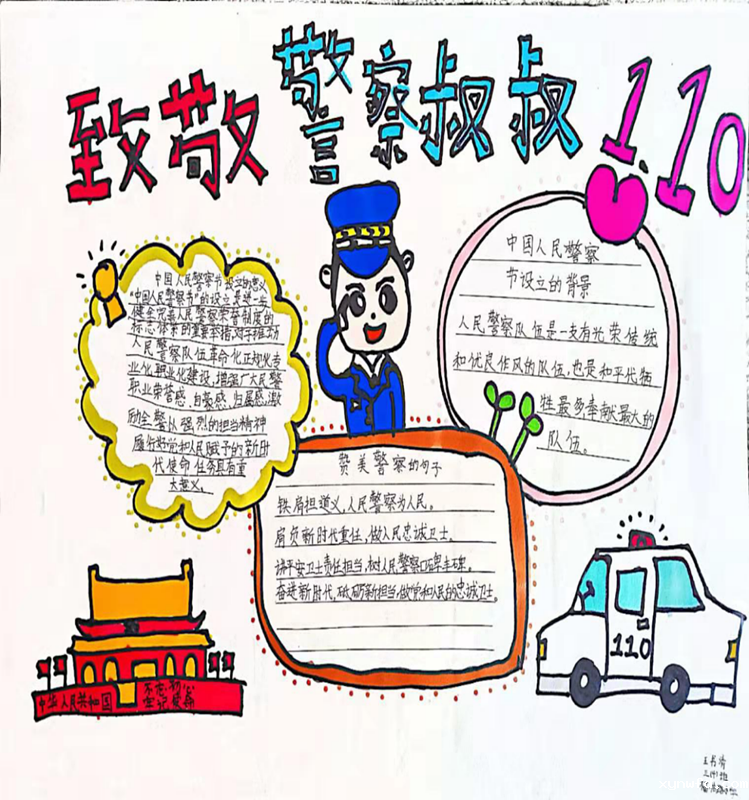 致敬警察叔叔1.10
中国人民警察节设立的意义
"中国人民警察节"的设立,是进一步
健全完善人民警察荣誉制度的
标志体策的重要举措,对于推动
人民警察队伍革命化正规化专
业化职业化建设,增强广大民警
职业荣誉感.自豪感.归属感,激
励全警以强烈的担当精神
履行好党和人民赋予的新时
代使命任务具有重
大意义。
中国人民警察
节设立的背景
人民警察队伍是一支有光荣传统
和优良作风的队伍,也是和平代牺
牲最多奉献最大的
队伍。
赞美警察的句子
铁肩担道义,人民警察为人民。
肩负新时代重任,做人民忠诚卫士。
讲平安卫士责任担当,树人民警察口碑丰碑。
奋进新时代,砥砺新担当,做党和人民的忠诚卫士。
中华人民共和国
不忘初心
牢记使命
110